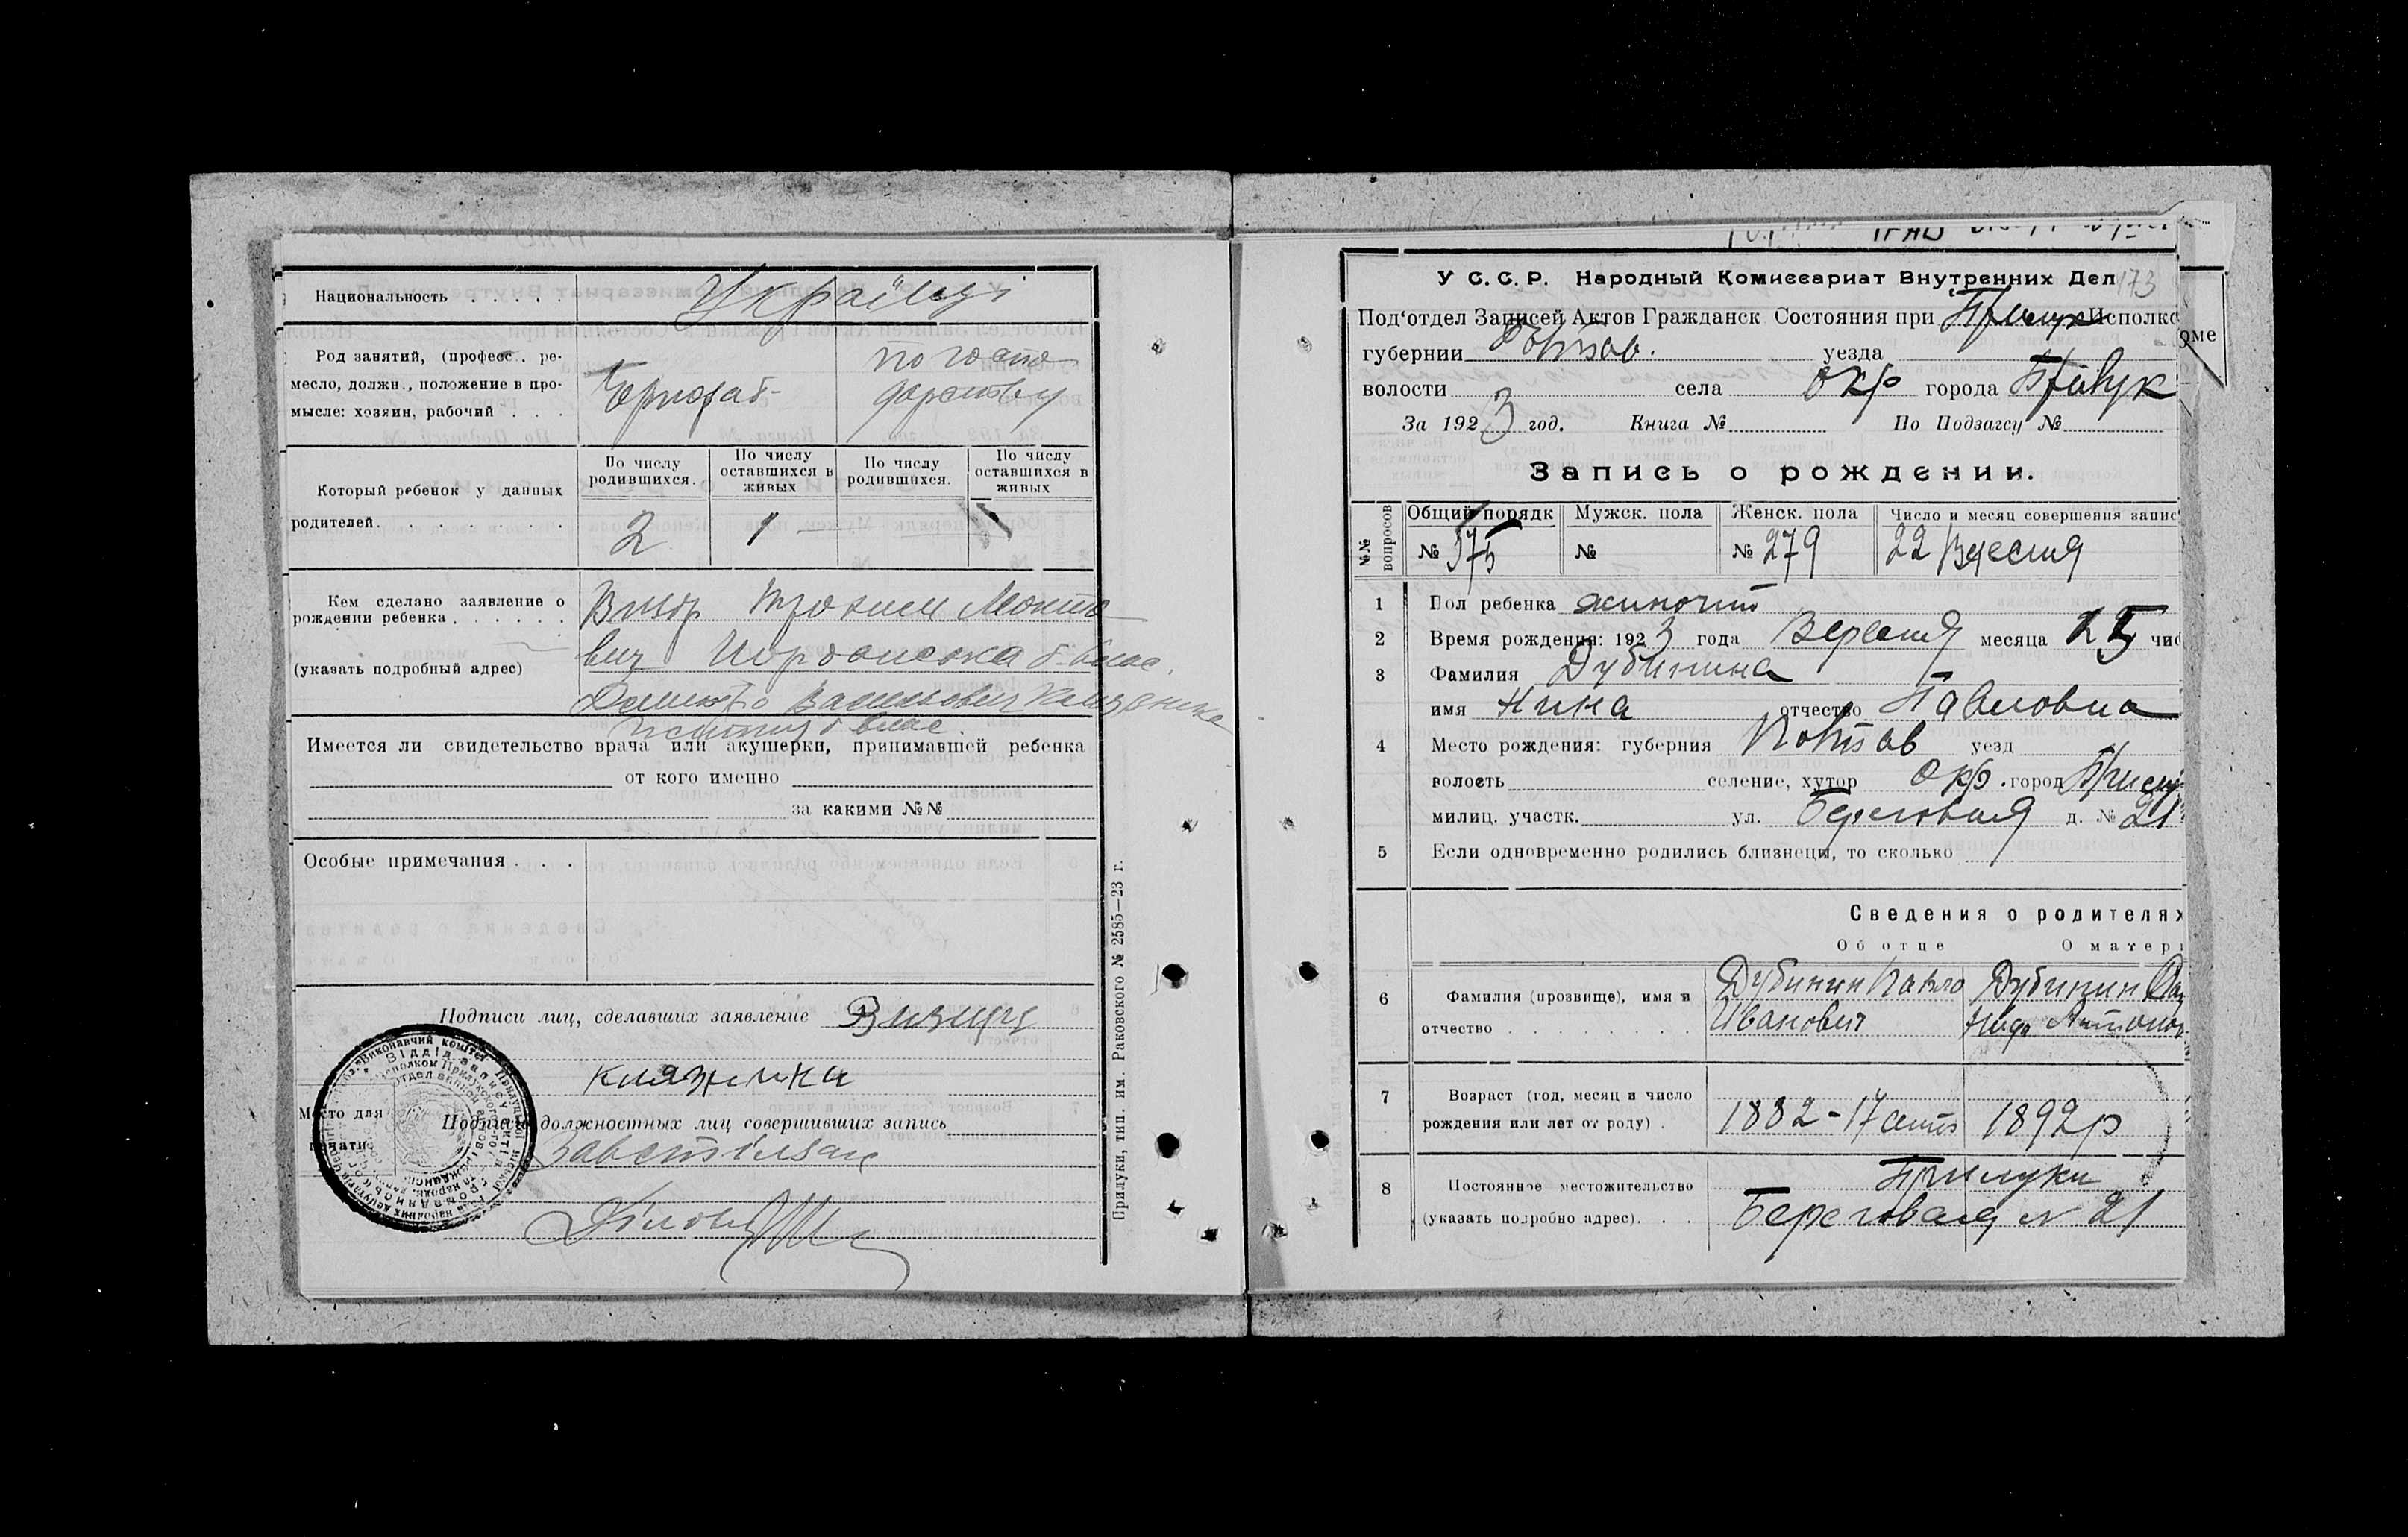 Национальность . . . . . Українці
Род занятий, (професс. ре-
месло, должн., положение в про-
мысле: хозяин, рабочий . . .
Чернораб-
по госпо
дарству
Который ребенок у данных
родителей. . . . . . . .
По числу родившихся.
По числу оставшихся в живых
По числу родившихся.
По числу оставшихся в живых
2 1
Кем сделано заявление о
рождении ребенка . . . . . .
(указать подробный адрес)
Трохим
вич
Васильович
Имеется ли свидетельство врача или акушерки, принимавшей ребенка
от кого именно
за какими №№
Особые примечания . . .
Подписи лиц, сделавших заявление
Место для
печати
Подписи должностных лиц совершивших запись
Прилуки, тип. им. Раковского № 2585—23 г.
173
У С. С. Р. Народный Комиссариат Внутренних Дел
Под‘отдел Записей Актов Гражданск Состояния при Прилук Исполко
оме
губернии Полтав. уезда
волости села окр города Прилук
За 1923 год. Книга № По Подзагсу №
Запись о рождении.
№№ вопросов
Общий порядк № 575
Мужск. пола №
Женск. пола № 279
Число и месяц совершения запис
22 Вересня
1 Пол ребенка жиночий
2 Время рождения: 1923 года Вересня месяца 15 чис
3 Фамилия Дубинина
имя Нина отчество Павловна
4 Место рождения: губерния Полтав уезд
волость селение, хутор Окр. город Прилу
милиц. участк. ул. Береговая д. № 21
5 Если одновременно родились близнецы, то сколько
Сведения о родителях
Об отце О матер
6 Фамилия (прозвище), имя и
отчество . . . . . . . . .
Дубинин Павло
Иванович
Дубинин
7 Возраст (год, месяц и число
рождения или лет от роду) .
1882 - 17 сент 1892р
8 Постоянное местожительство
(указать подробно адрес). . .
Прилуки
Береговая № 21